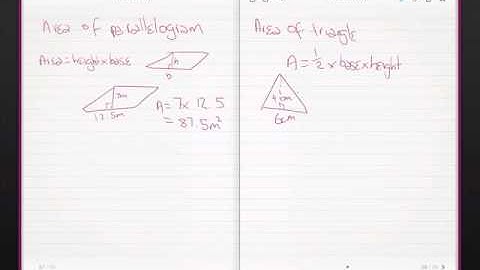 Area of parallelogram
Area = height x base
h
b
7m
12.5m
A = 7 x 12.5
= 87.5m²
Area of triangle
A = 1/2 x base x height
4cm
6cm